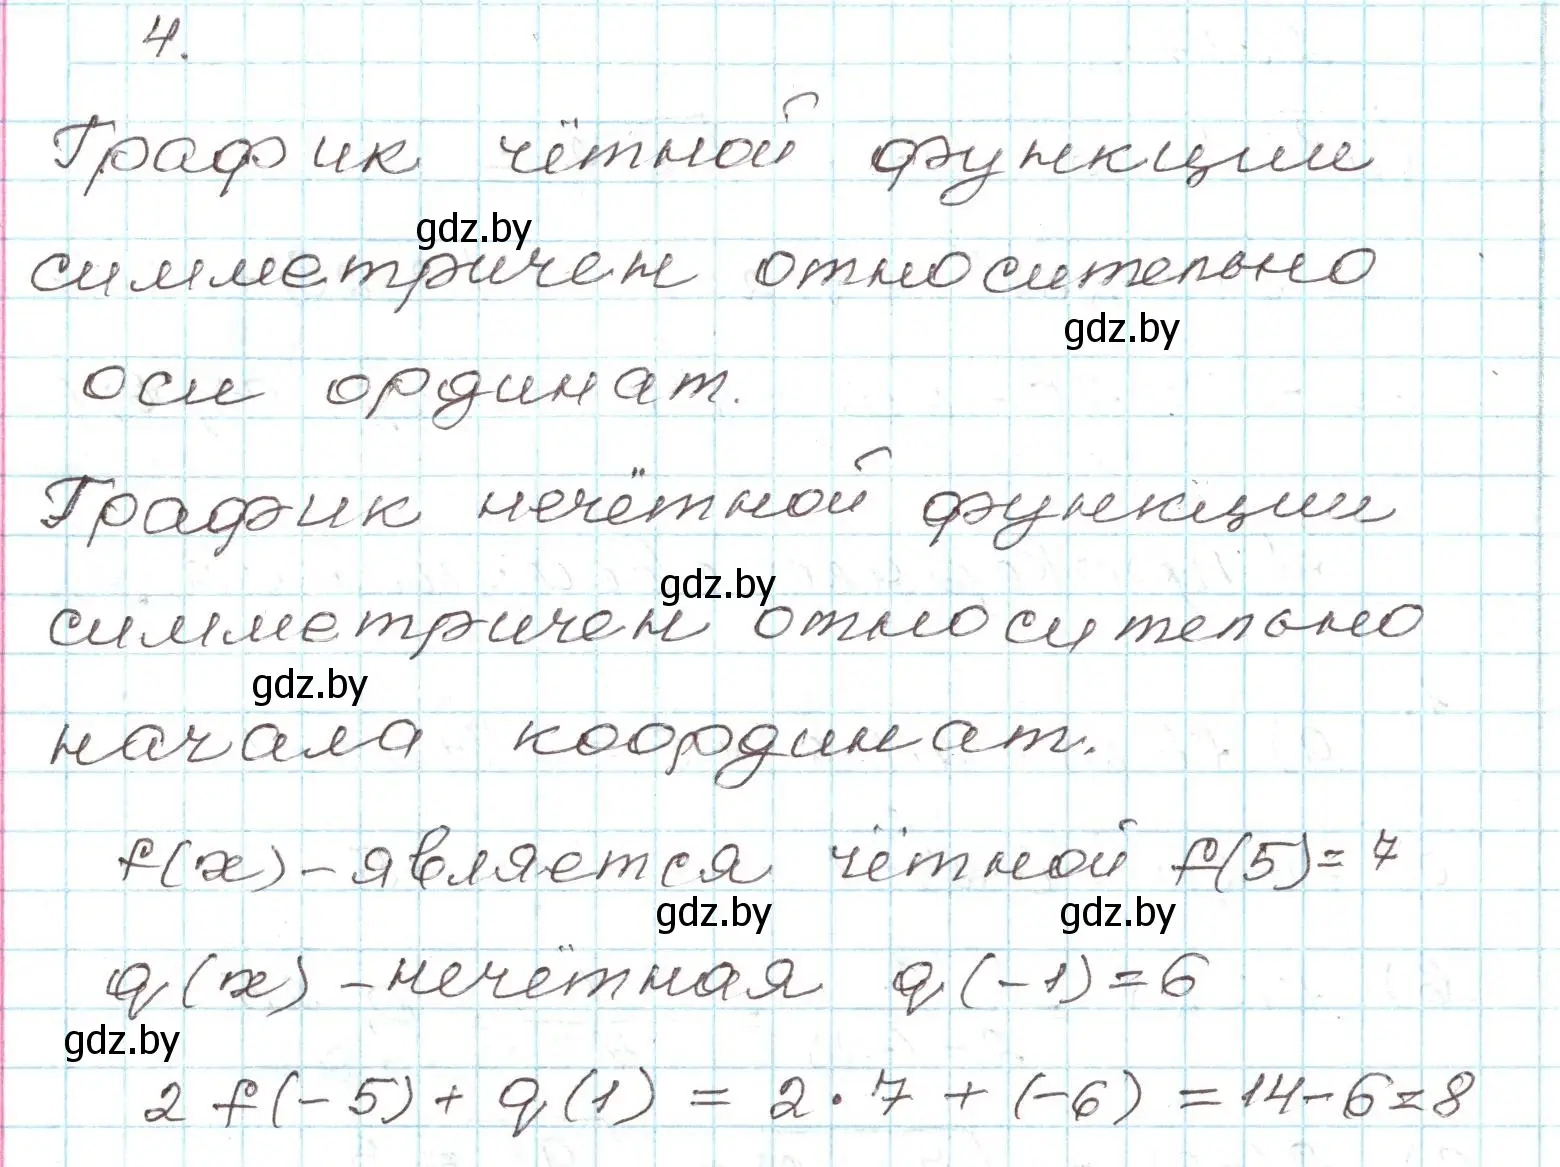 4.
График чётной функции
gdz.by
симметричен относительно
gdz.by
оси ординат.
График нечётной функции
gdz.by
симметричен относительно
gdz.by
начала координат.
f(x) – является чётной f(5) = 7
gdz.by gdz.by
q(x) – нечётная q(-1) = 6
gdz.by
2 f(-5) + q(1) = 2 · 7 + (-6) = 14 - 6 = 8